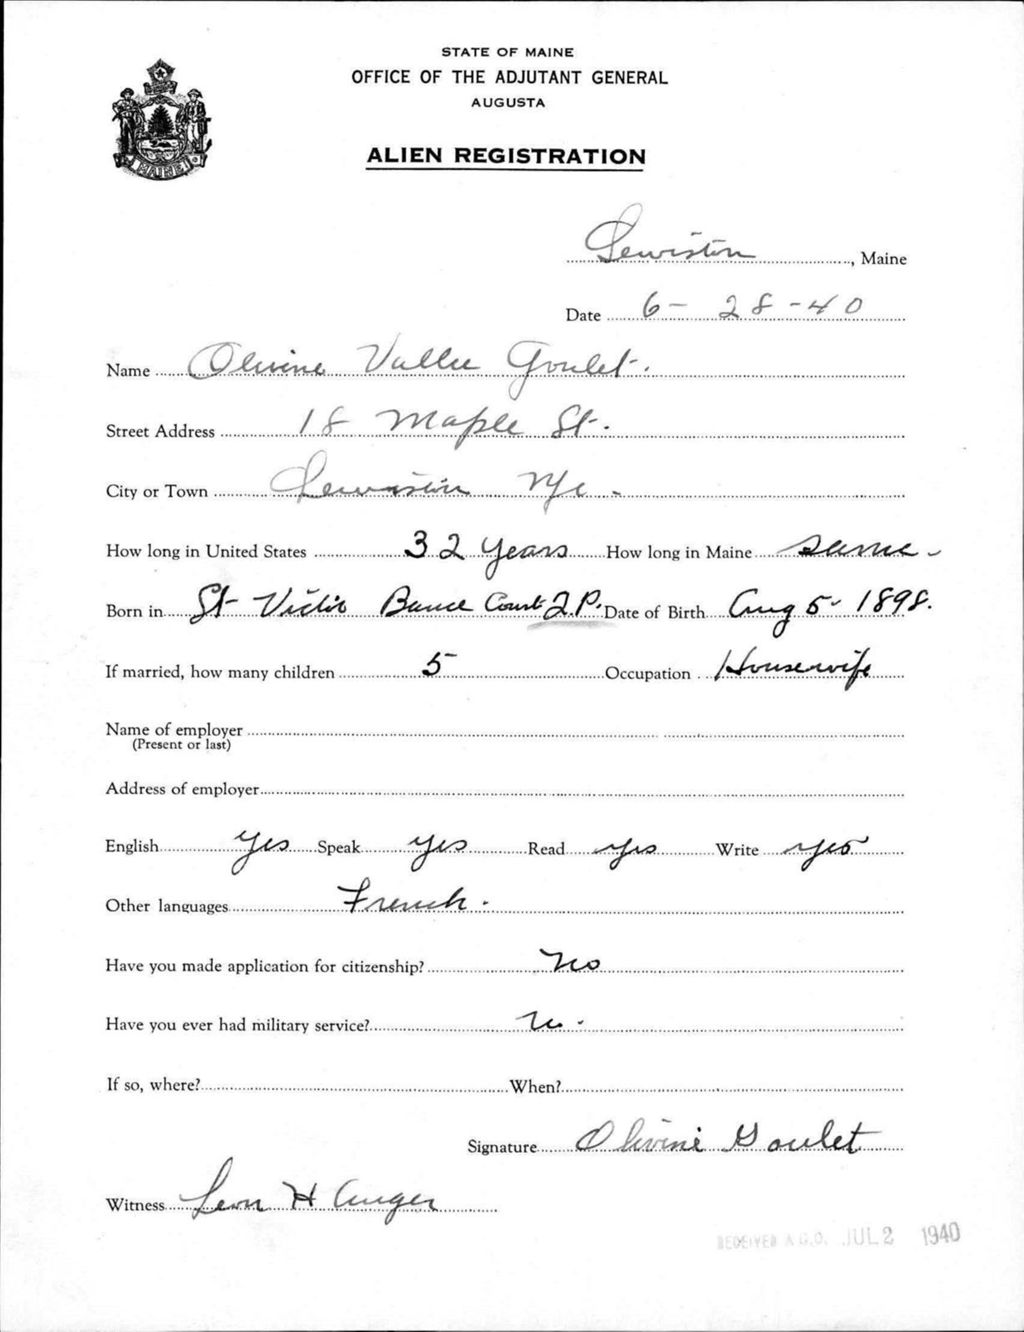 STATE OF MAINE
OFFICE OF THE ADJUTANT GENERAL
AUGUSTA
ALIEN REGISTRATION
MAINE
Lewiston, Maine
Date 6 - 28 - 40
Name Olivine Vallee Goulet.
Street Address 18 Maple St.
City or Town Lewiston Me.
How long in United States 32 years How long in Maine same -
Born in St Victor Bauce Count P. Date of Birth Aug 5 - 1898.
If married, how many children 5 Occupation Housewife
Name of employer
(Present or last)
Address of employer
English yes Speak yes Read yes Write yes
Other languages French.
Have you made application for citizenship? No
Have you ever had military service? no.
If so, where? When?
Signature Olivine Goulet
Witness Leon H Auger
RECEIVED A.G.O. JUL 2 1940